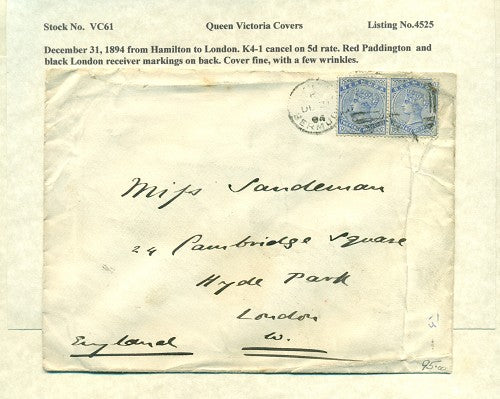 Stock No. VC61 Queen Victoria Covers Listing No.4525
December 31, 1894 from Hamilton to London. K4-1 cancel on 5d rate. Red Paddington and
black London receiver markings on back. Cover fine, with a few wrinkles.
94
BERMUDA
Miss Sandeman
24 Cambridge Square
Hyde Park
London
England W.
95.00